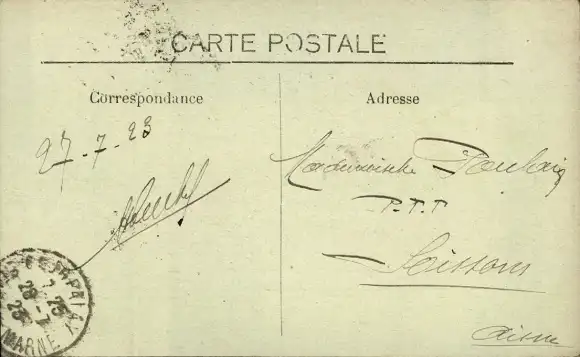 CARTE POSTALE
Correspondance
Adresse
27-7-23
Mademoiselle Poulain
P.T.T
Soissons
Aisne
MARNE